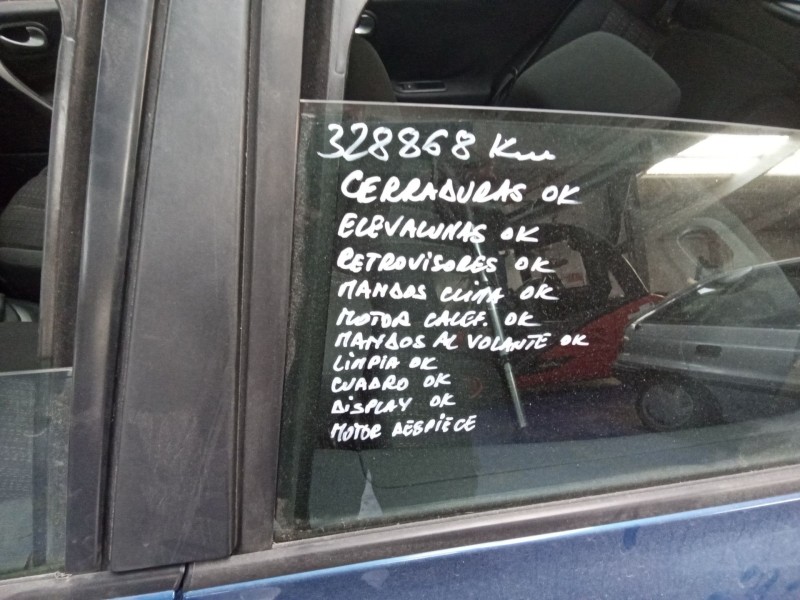 328868 Km
CERRADURAS OK
ELEVALUNAS OK
RETROVISORES OK
MANDOS CLIMA OK
MOTOR CALEF. OK
MANDOS AL VOLANTE OK
LIMPIA OK
CUADRO OK
DISPLAY OK
MOTOR DESPIECE